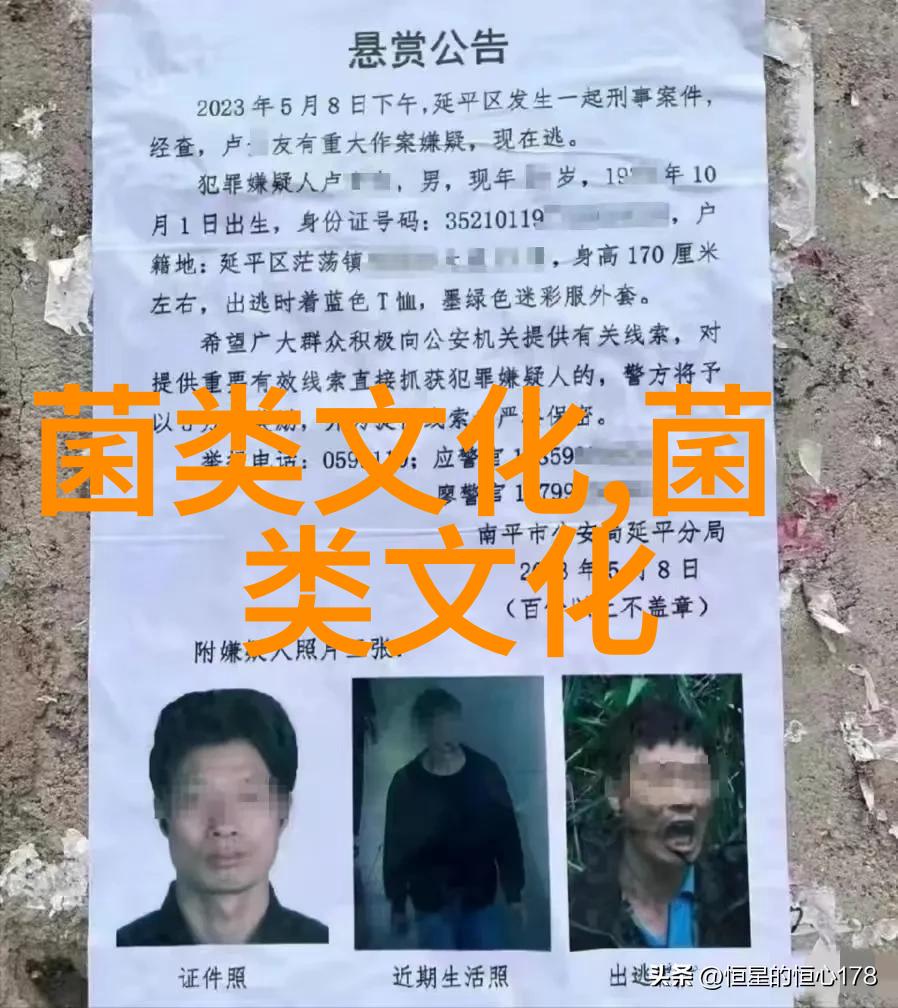 悬赏公告
2023年5月8日下午,延平区发生一起刑事案件,
经查,卢 友有重大作案嫌疑,现在逃。
犯罪嫌疑人卢 ,男,现年 岁,19 年10
月1日出生,身份证号码:35210119 ,户
籍地:延平区茫荡镇 ,身高170厘米
左右,出逃时着蓝色T恤,墨绿色迷彩服外套。
希望广大群众积极向公安机关提供有关线索,对
提供重要有效线索直接抓获犯罪嫌疑人的,警方将予
以 线索 严 保密。
菌类文化,菌
类文化
举报电话:059 110;应警官1 859
廖警官1 799
南平市公安局延平分局
2023年5月8日
(百 不盖章)
附嫌疑人照片三张:
证件照
近期生活照
出逃
头条 @恒星的恒心178